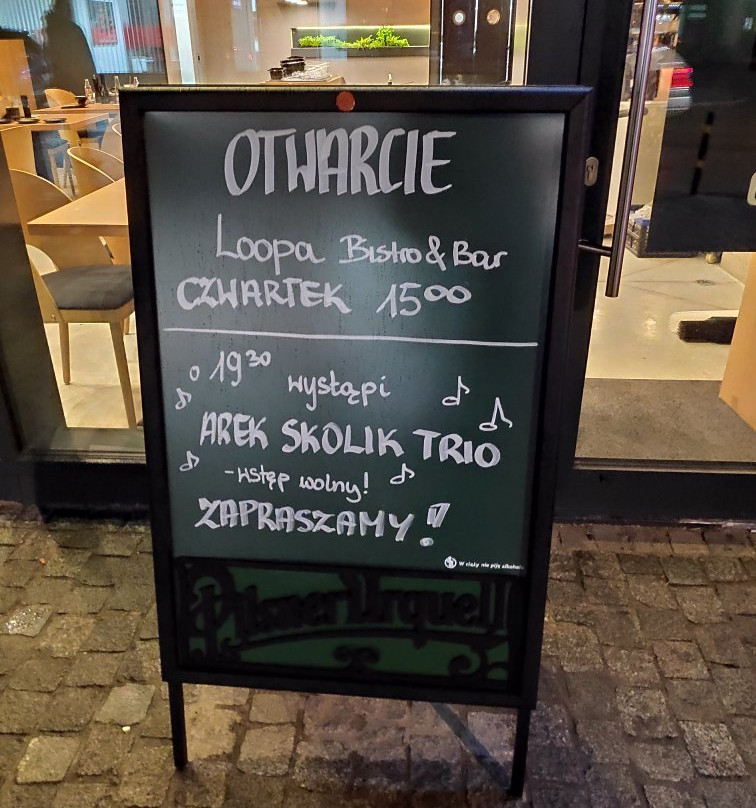 OTWARCIE
Loopa Bistro & Bar
CZWARTEK 15⁰⁰
o 19³⁰
wystąpi
AREK SKOLIK TRIO
- wstęp wolny!
ZAPRASZAMY!!
W ciąży nie piję alkoholu
Pilsner Urquell